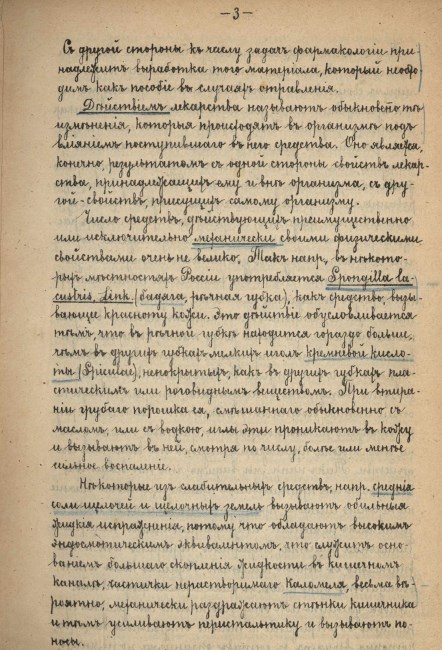 —3—
Съ другой стороны къ числу задачъ фармакологіи при-
надлежитъ выработка того матеріала, который необхо-
димъ какъ пособіе въ случаяхъ отравленія.
Дѣйствіемъ лекарства называютъ обыкновенно тѣ
измѣненія, которыя происходятъ въ организмѣ подъ
вліяніемъ поступившаго въ него средства. Оно является,
конечно, результатомъ съ одной стороны свойствъ лекар-
ства, принадлежащихъ ему и внѣ организма, съ дру-
гой - свойствъ, присущихъ самому организму.
Число средствъ, дѣйствующихъ преимущественно
или исключительно механически своими физическими
свойствами очень не велико. Такъ напр., въ нѣкото-
рыхъ мѣстностяхъ Россіи употребляется Spongilla la-
custris, Link. (бадяга, рѣчная губка), какъ средство, вызы-
вающее красноту кожи. Это дѣйствіе обусловливается
тѣмъ, что въ рѣчной губкѣ находится гораздо больше,
чѣмъ въ другихъ губкахъ мелкихъ иголъ кремневой кисло-
ты (Spiculae), непокрытыхъ, какъ въ другихъ губкахъ эла-
стическимъ или роговиднымъ веществомъ. При втира-
ніи грубаго порошка ея, смѣшаннаго обыкновенно съ
масломъ, или съ водкою, иглы эти проникаютъ въ кожу
и вызываютъ въ ней, смотря по числу, болѣе или менѣе
сильное воспаленіе.
Нѣкоторые изъ слабительныхъ средствъ, напр. среднія
соли щелочей и щелочныхъ земель вызываютъ обильныя
жидкія испражненія, потому что обладаютъ высокимъ
эндосмотическимъ эквивалентомъ, что служитъ осно-
ваніемъ большаго скопленія жидкости въ кишечномъ
каналѣ, частички нерастворимаго Каломеля, весьма вѣ-
роятно, механически раздражаютъ стѣнки кишечника
и тѣмъ усиливаютъ перистальтику и вызываютъ по-
носы.